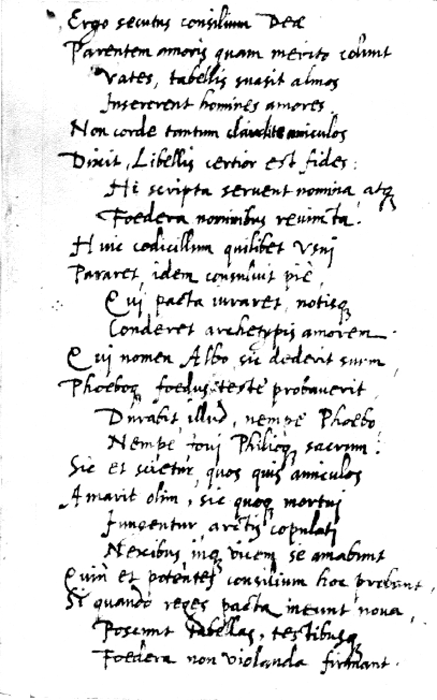 Ergo secutus consilium Deæ
Parentem amoris quam merito colunt
Vates, tabellis suasit almos
Insererent homines amores
Non corde tantum claudite amiculos
Dixit, Libellis certior est fides:
Hi scripta seruent nomina atq
Foedera nominibus reuincta.
Huic codicillum quilibet Vsui
Pararet, idem consuluit piè,
Cui pacta iuraret, notisq
Conderet archetypis amorem.
Qui nomen Albo sic dederit suum,
Phoeboq foedus teste probauerit,
Durabit illud, nempe Phoebo
Nempe Ioui Philioq sacrum.
Sic et scietur, quos quis amiculos
Amarit olim, sic quoq mortui
Jungentur, arctis copulati
Nexibus inq vicem se amabunt
Quin et potentes consilium hoc probant,
Si quando reges pacta ineunt noua,
Poscunt tabellas, testibusq
Foedera non violanda firmant.